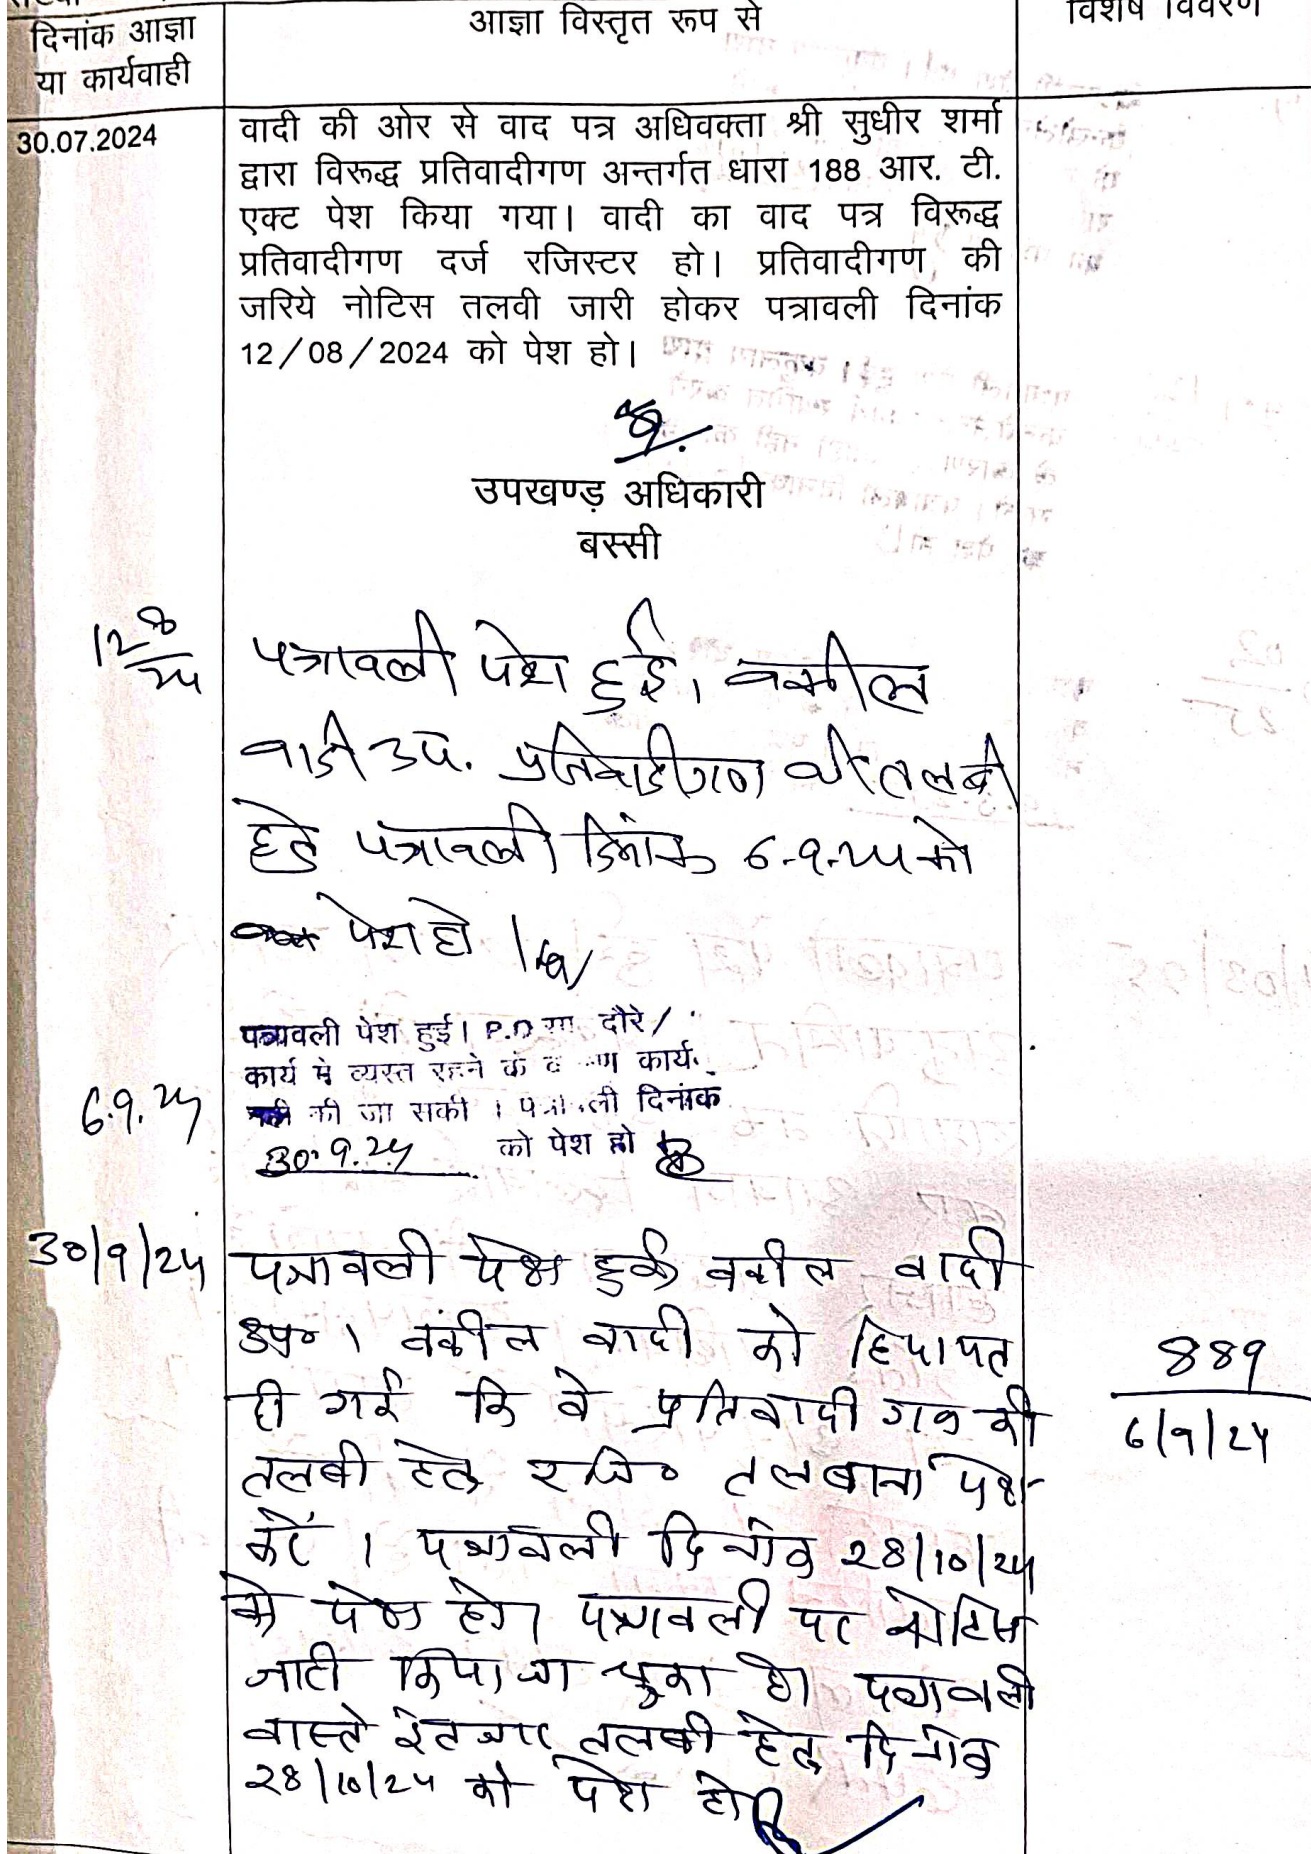 दिनांक आज्ञा
या कार्यवाही
आज्ञा विस्तृत रूप से
विशेष विवरण
30.07.2024
वादी की ओर से वाद पत्र अधिवक्ता श्री सुधीर शर्मा
द्वारा विरूद्ध प्रतिवादीगण अन्तर्गत धारा 188 आर. टी.
एक्ट पेश किया गया। वादी का वाद पत्र विरूद्ध
प्रतिवादीगण दर्ज रजिस्टर हो। प्रतिवादीगण की
जरिये नोटिस तलवी जारी होकर पत्रावली दिनांक
12/08/2024 को पेश हो।
उपखण्ड़ अधिकारी
बस्सी
12/8/24
पत्रावली पेश हुई। वकील
वादी उप. प्रतिवादीगण की तलबी
हेतु पत्रावली दिनांक 6.9.24 को
पेश हो।
पत्रावली पेश हुई। P.O दौरे/
कार्य में व्यस्त रहने के कार्य
की जा सकी। दिनांक
6.9.24
30.9.24 को पेश हो
30/9/24
पत्रावली पेश हुई वकील वादी
उप०। वकील वादी को हिदायत
दी गई कि वे प्रतिवादीगण की
तलबी हेतु रजि० तलबाना पेश
करें। पत्रावली दिनांक 28/10/24
को पेश हो। पत्रावली पर नोटिस
जारी किया जा चुका है। पत्रावली
वास्ते इंतजार तलबी हेतु दिनांक
28/10/24 को पेश हो
889
6/9/24